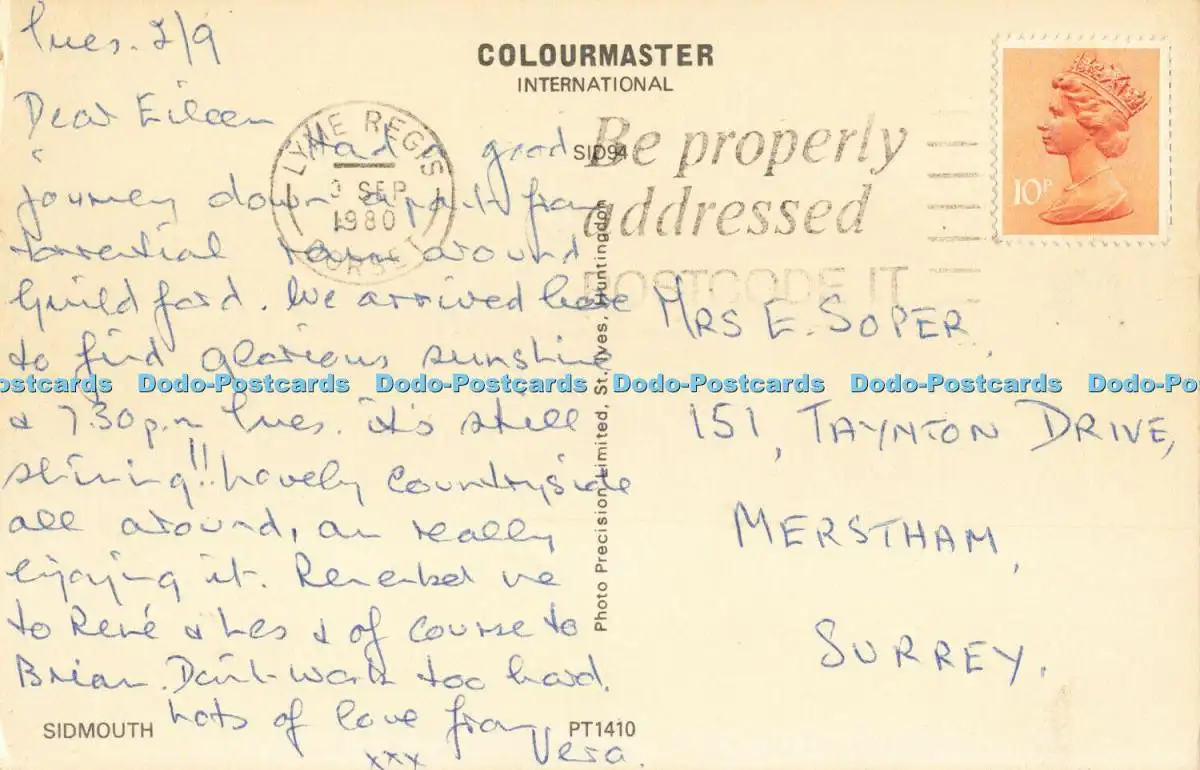 Tues. 2/9
Dear Eileen
Had good
journey down apart from
torrential rain around
Guildford. We arrived here
to find glorious sunshine
& 7.30p.m Tues. it's still
shining!! Lovely countryside
all around, am really
enjoying it. Remember me
to René & Les & of course to
Brian. Don't work too hard.
Lots of love from
Vera.
xxx
COLOURMASTER
INTERNATIONAL
SID94
Photo Precision Limited, St. Ives, Huntingdon
SIDMOUTH
PT1410
LYME REGIS
3 SEP
1980
DORSET
Be properly
addressed
POSTCODE IT
10P
MRS E. SOPER,
151, TAYNTON DRIVE,
MERSTHAM,
SURREY.
Dodo-Postcards Dodo-Postcards Dodo-Postcards Dodo-Postcards